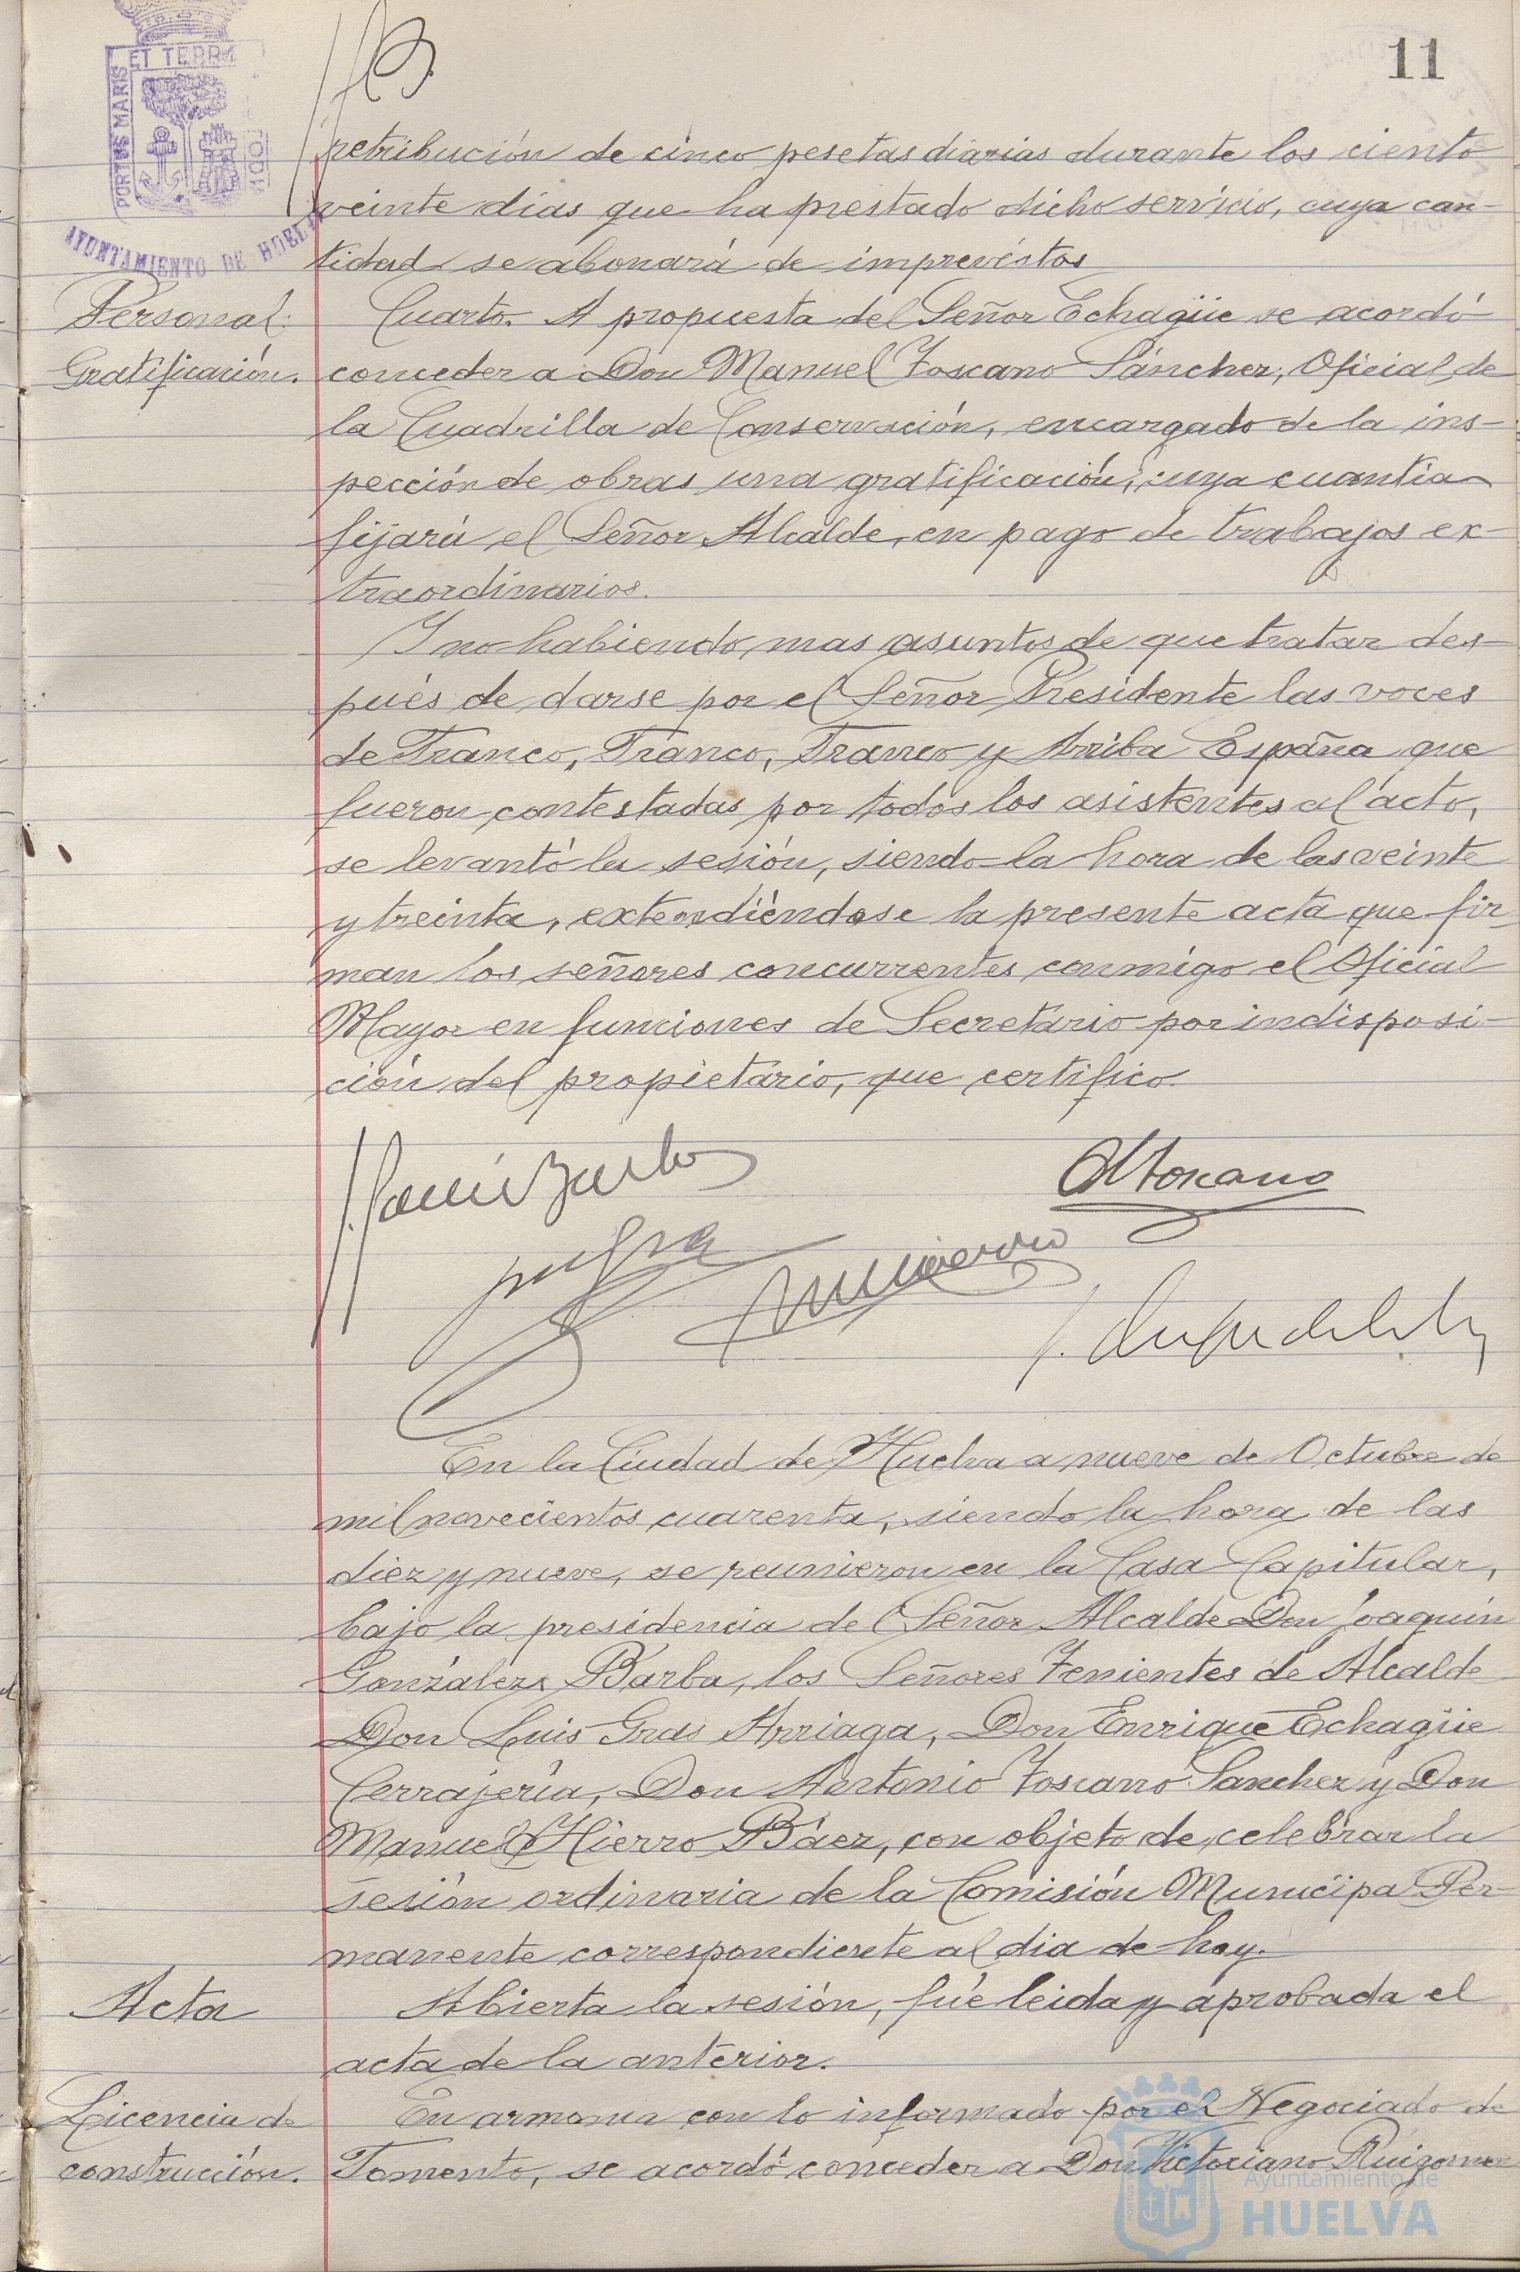 11
PORTUS MARIS ET TERRÆ CUSTODIA
AYUNTAMIENTO DE HUELVA
retribución de cinco pesetas diarias durante los ciento
veinte dias que ha prestado dicho servicio, cuya can-
tidad se abonará de imprevistos
Personal.
Gratificación.
Cuarto. A propuesta del Señor Echagüe se acordó
conceder a Don Manuel Toscano Sánchez, Oficial de
la Cuadrilla de Conservación, encargado de la ins-
pección de obras una gratificación, cuya cuantia
fijará el Señor Alcalde, en pago de trabajos ex-
traordinarios.
Y no habiendo mas asuntos de que tratar des-
pués de darse por el Señor Presidente las voces
de Franco, Franco, Franco y Arriba España que
fueron contestadas por todos los asistentes al acto,
se levantó la sesión, siendo la hora de las veinte
y treinta, extendiéndose la presente acta que fir-
man los señores concurrentes conmigo el Oficial
Mayor en funciones de Secretario por indisposi-
ción del propietario, que certifico.
A Toscano
En la Ciudad de Huelva a nueve de Octubre de
mil novecientos cuarenta, siendo la hora de las
diez y nueve, se reunieron en la Casa Capitular,
bajo la presidencia del Señor Alcalde Don Joaquín
González Barba, los Señores Tenientes de Alcalde
Don Luis Gras Arriaga, Don Enrique Echagüe
Cerrajería, Don Antonio Toscano Sanchez y Don
Manuel Hierro Báez, con objeto de celebrar la
sesión ordinaria de la Comisión Municipal Per-
manente correspondiente al dia de hoy.
Acta
Abierta la sesión, fué leida y aprobada el
acta de la anterior.
Licencia de
construcción.
En armonia con lo informado por el Negociado de
Fomento, se acordó conceder a Don Victoriano Ruigomez
Ayuntamiento de
HUELVA